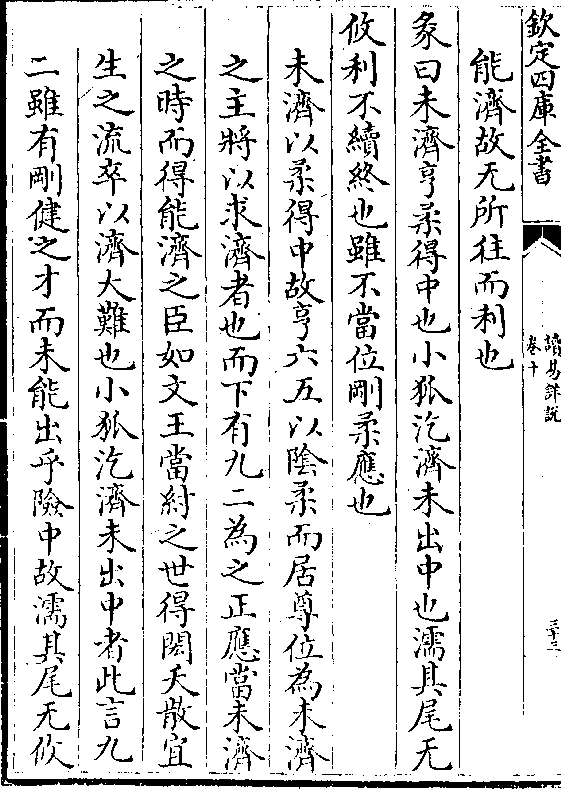 欽定四庫全書
讀易詳説
卷十
三十三
能濟故无所往而利也
彖曰未濟亨柔得中也小狐汔濟未出中也濡其尾无
攸利不續終也雖不當位剛柔應也
未濟以柔得中故亨六五以陰柔而居尊位為未濟
之主將以求濟者也而下有九二為之正應當未濟
之時而得能濟之臣如文王當紂之世得閎夭散宜
生之流卒以濟大難也小狐汔濟未出中者此言九
二雖有剛健之才而未能出乎險中故濡其尾无攸